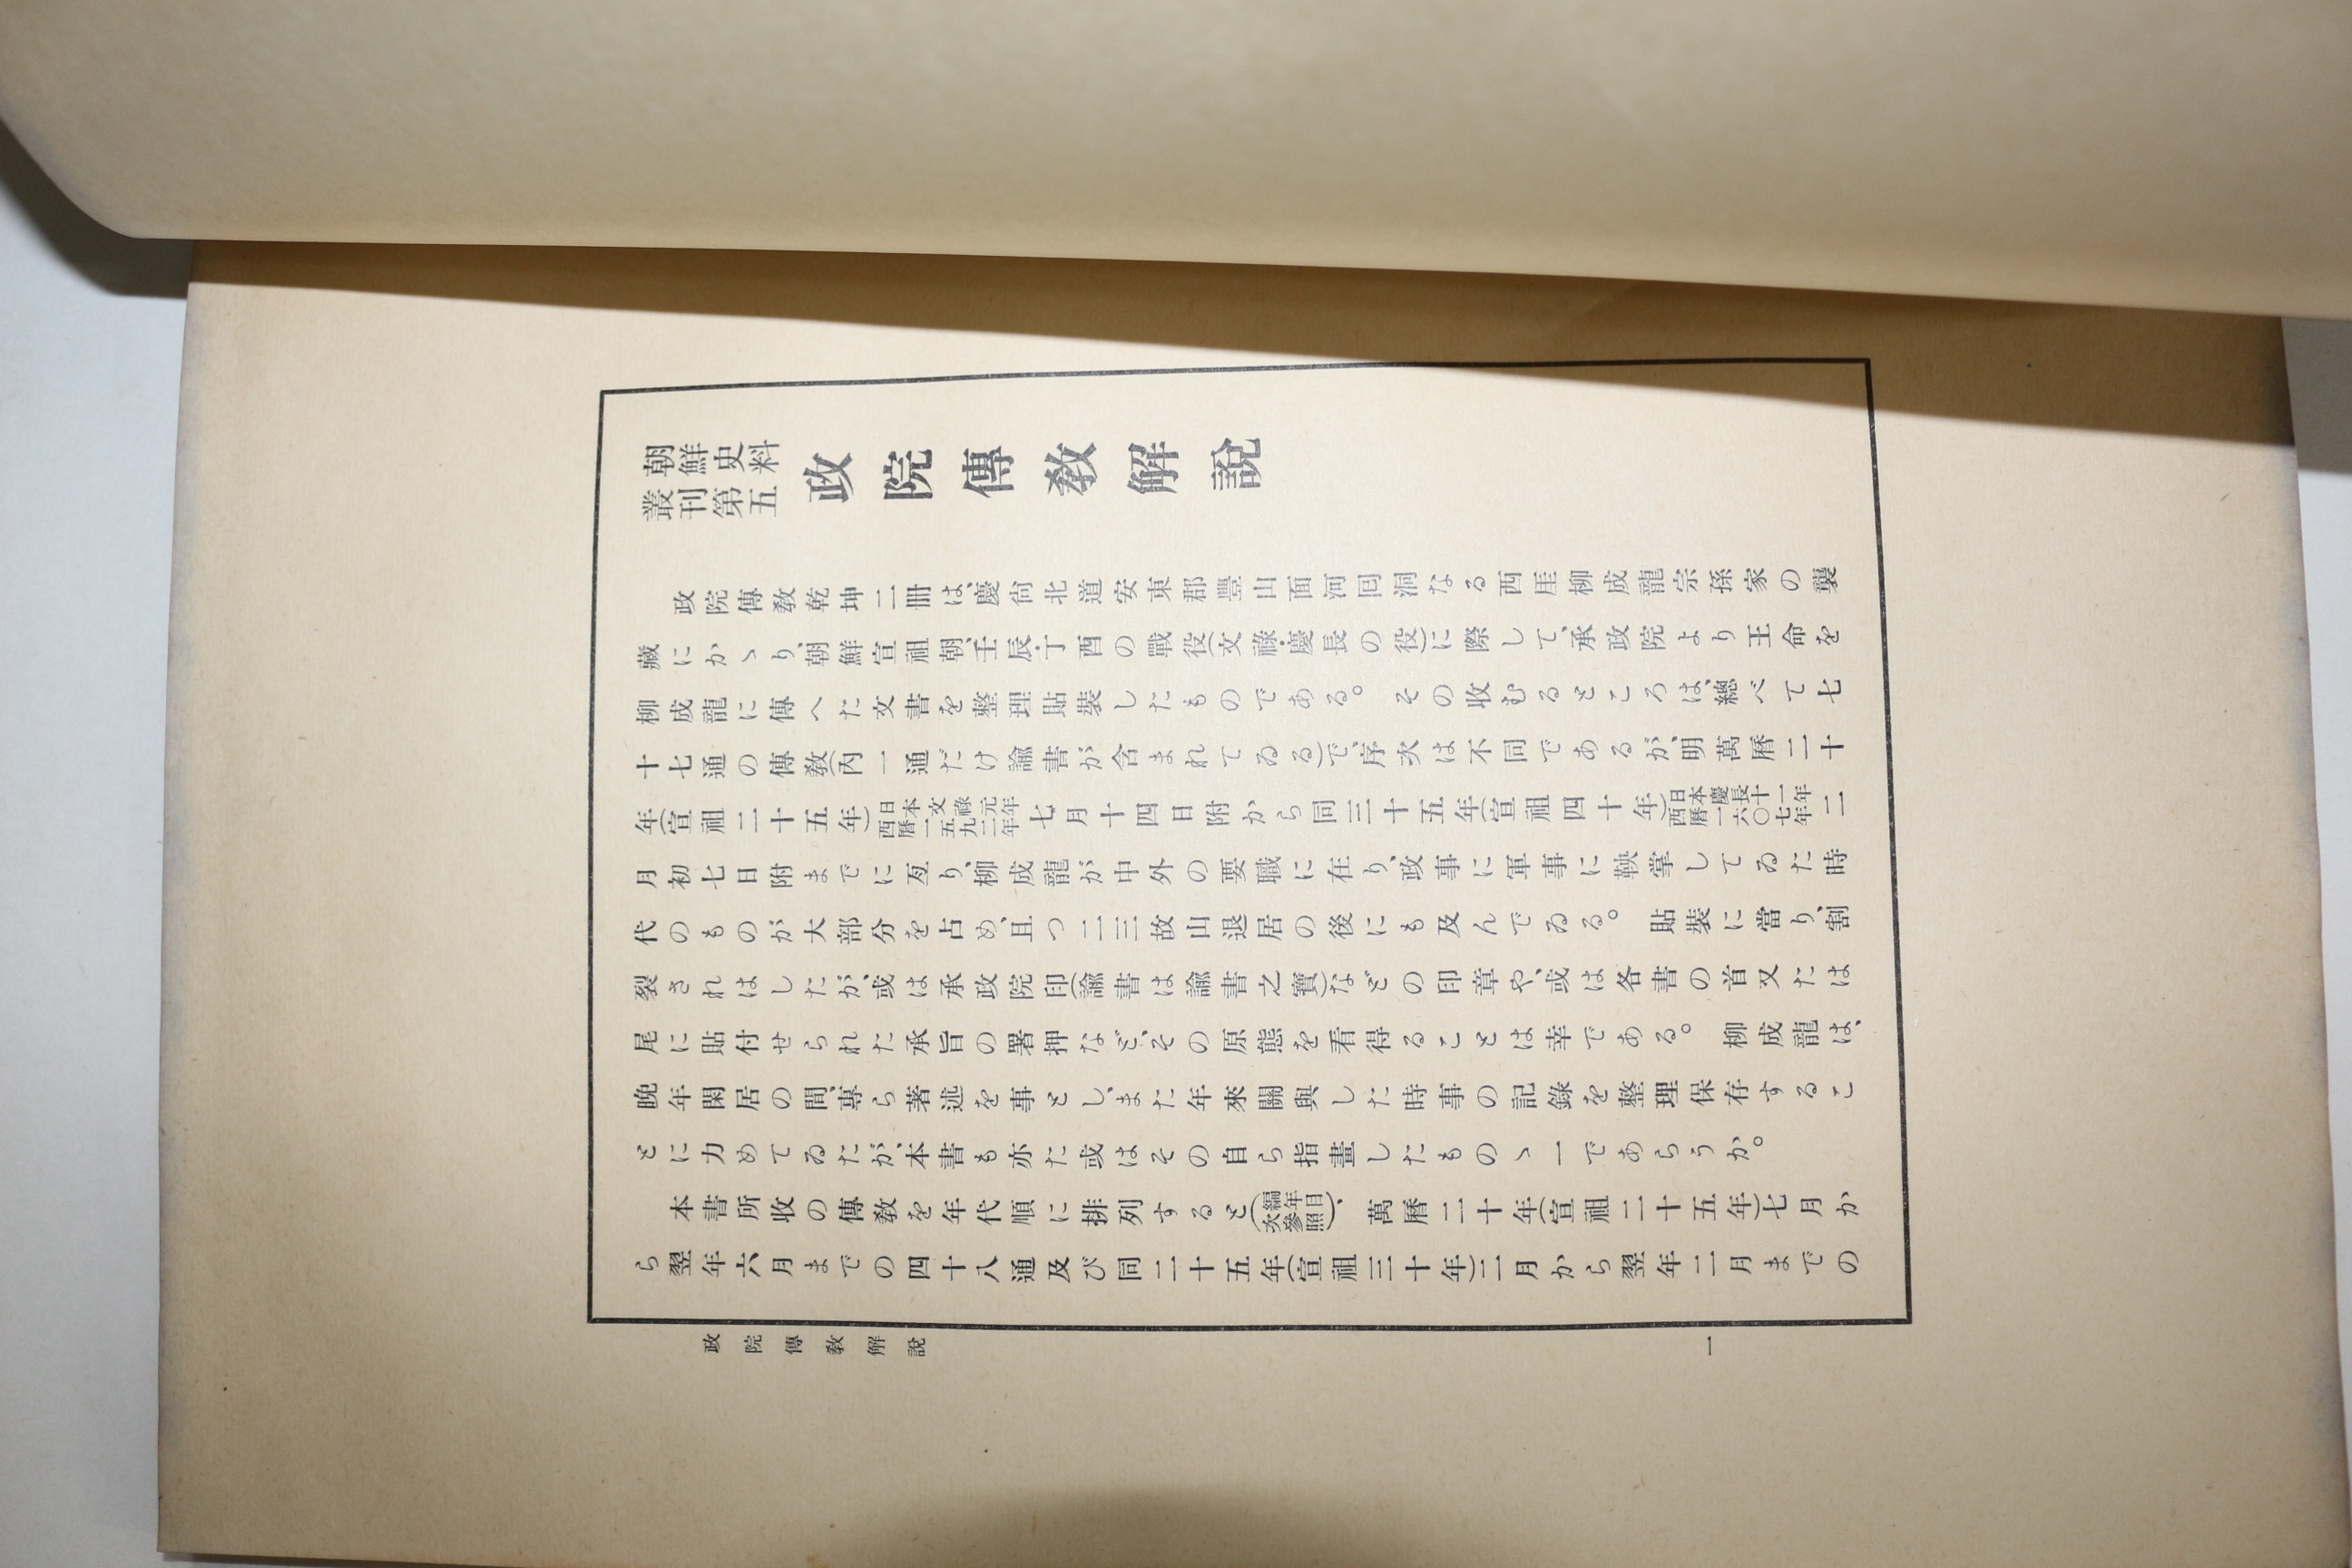 朝鮮史料
叢刊第五
政院傳教解說
政院傳教乾坤二冊は、慶尙北道安東郡豐山面河回洞なる西厓柳成龍宗孫家の襲
藏にかゝり、朝鮮宣祖朝、壬辰・丁酉の戰役(文祿・慶長の役)に際して、承政院より王命を
柳成龍に傳へた文書を整理貼裝したものである。その收むるところは、總べて七
十七通の傳教(內一通だけ諭書が含まれてゐる)で、序次は不同であるが、明萬曆二十
年(宣祖二十五年)日本文祿元年西曆一五九二年七月十四日附から同三十五年(宣祖四十年)日本慶長十一年西曆一六〇七年二
月初七日附までに亙り、柳成龍が中外の要職に在り、政事に軍事に鞅掌してゐた時
代のものが大部分を占め、且つ二三故山退居の後にも及んでゐる。貼裝に當り、割
裂されはしたが、或は承政院印(諭書は諭書之寶)などの印章や、或は各書の首又たは
尾に貼付せられた承旨の署押など、その原態を看得ることは幸である。柳成龍は、
晚年閑居の間、專ら著述を事とし、また年來關與した時事の記錄を整理保存するこ
とに力めてゐたが、本書も亦た或はその自ら指畫したものゝ一であらうか。
本書所收の傳教を年代順に排列すると(編年目次參照)、萬曆二十年(宣祖二十五年)七月か
ら翌年六月までの四十八通及び同二十五年(宣祖三十年)二月から翌年二月までの
政院傳教解說
一